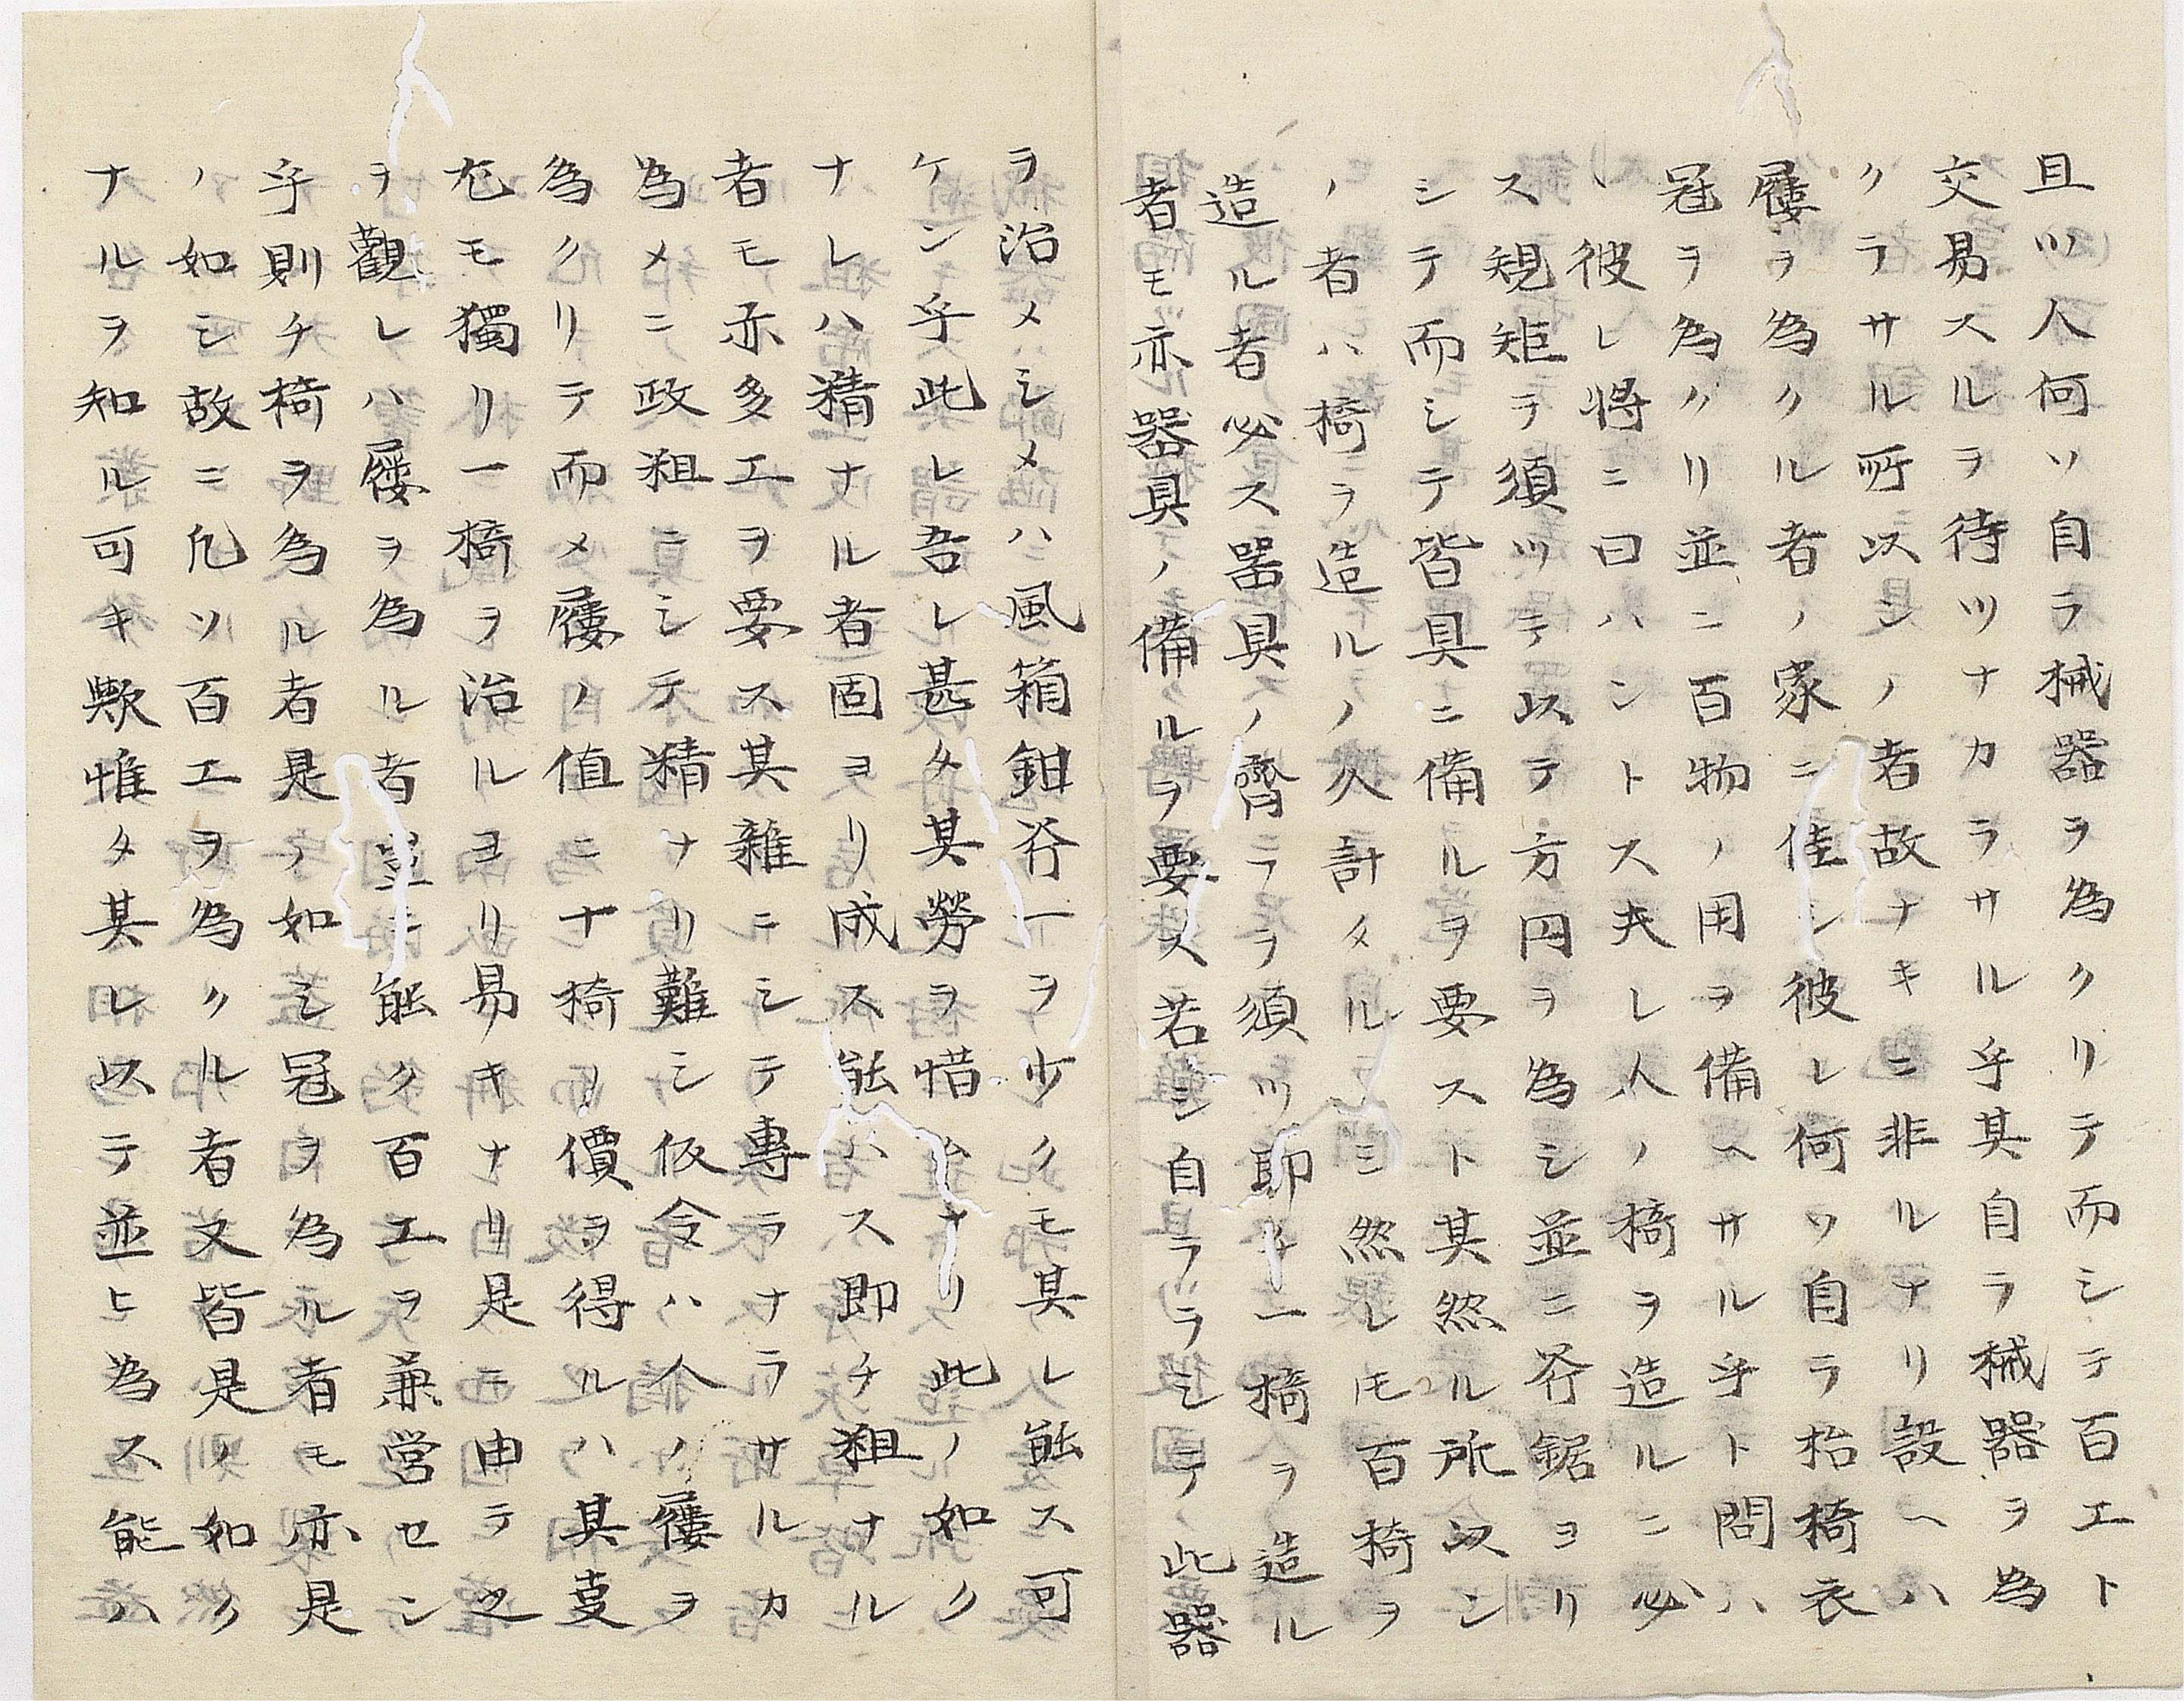 且ツ人何ソ自ラ械器ヲ為クリテ而シテ百工ト
交易スルヲ待ツナカラサル乎其自ラ械器ヲ為
クラサル所以ンノ者故ナキニ非ルナリ設ヘハ
屨ヲ為クル者ノ家ニ住シ彼レ何ソ自ラ抬椅衣
冠ヲ為クリ並ニ百物ノ用ヲ備ヘサル乎ト問ハ
ヽ彼レ将ニ曰ハントス夫レ人ノ椅ヲ造ルニ必
ス規矩ヲ須ツテ以テ方円ヲ為シ並ニ斧鋸ヨリ
シテ而シテ皆具ニ備ルヲ要スト其然ル所以ン
ノ者ハ椅ヲ造ルノ久計タルノミ然レモ百椅ヲ
造ル者必ス器具ノ齊ラヲ須ツ即チ一椅ヲ造ル
者モ亦器具ノ備ルヲ要ス若シ自ラヲシテ此器
ヲ治メシメハ風箱鉗斧一ヲ少クモ其レ能ス可
ケン乎此レ吾レ甚タ其勞ヲ惜ムナリ此ノ如ク
ナレハ精ナル者固ヨリ成ス能ハス即チ粗ナル
者モ亦多工ヲ要ス其雜ニシテ專ラナラサルカ
為メニ政粗ニシテ精ナリ難シ仮令ハ人ノ屨ヲ
為クリテ而メ屨ノ值ニ十椅ノ價ヲ得ルハ其㕝
尤モ獨リ一椅ヲ治ルヨリ易キナリ是ニ由テ之
ヲ觀レハ屨ヲ為ル者豈ニ能ク百工ヲ兼営セン
乎則チ椅ヲ為ル者是ノ如シ冠ヲ為ル者モ亦是
ノ如シ故ニ凢ソ百工ヲ為クル者又皆是ノ如ク
ナルヲ知ル可キ歟惟タ其レ以テ並ヒ為ス能ハ